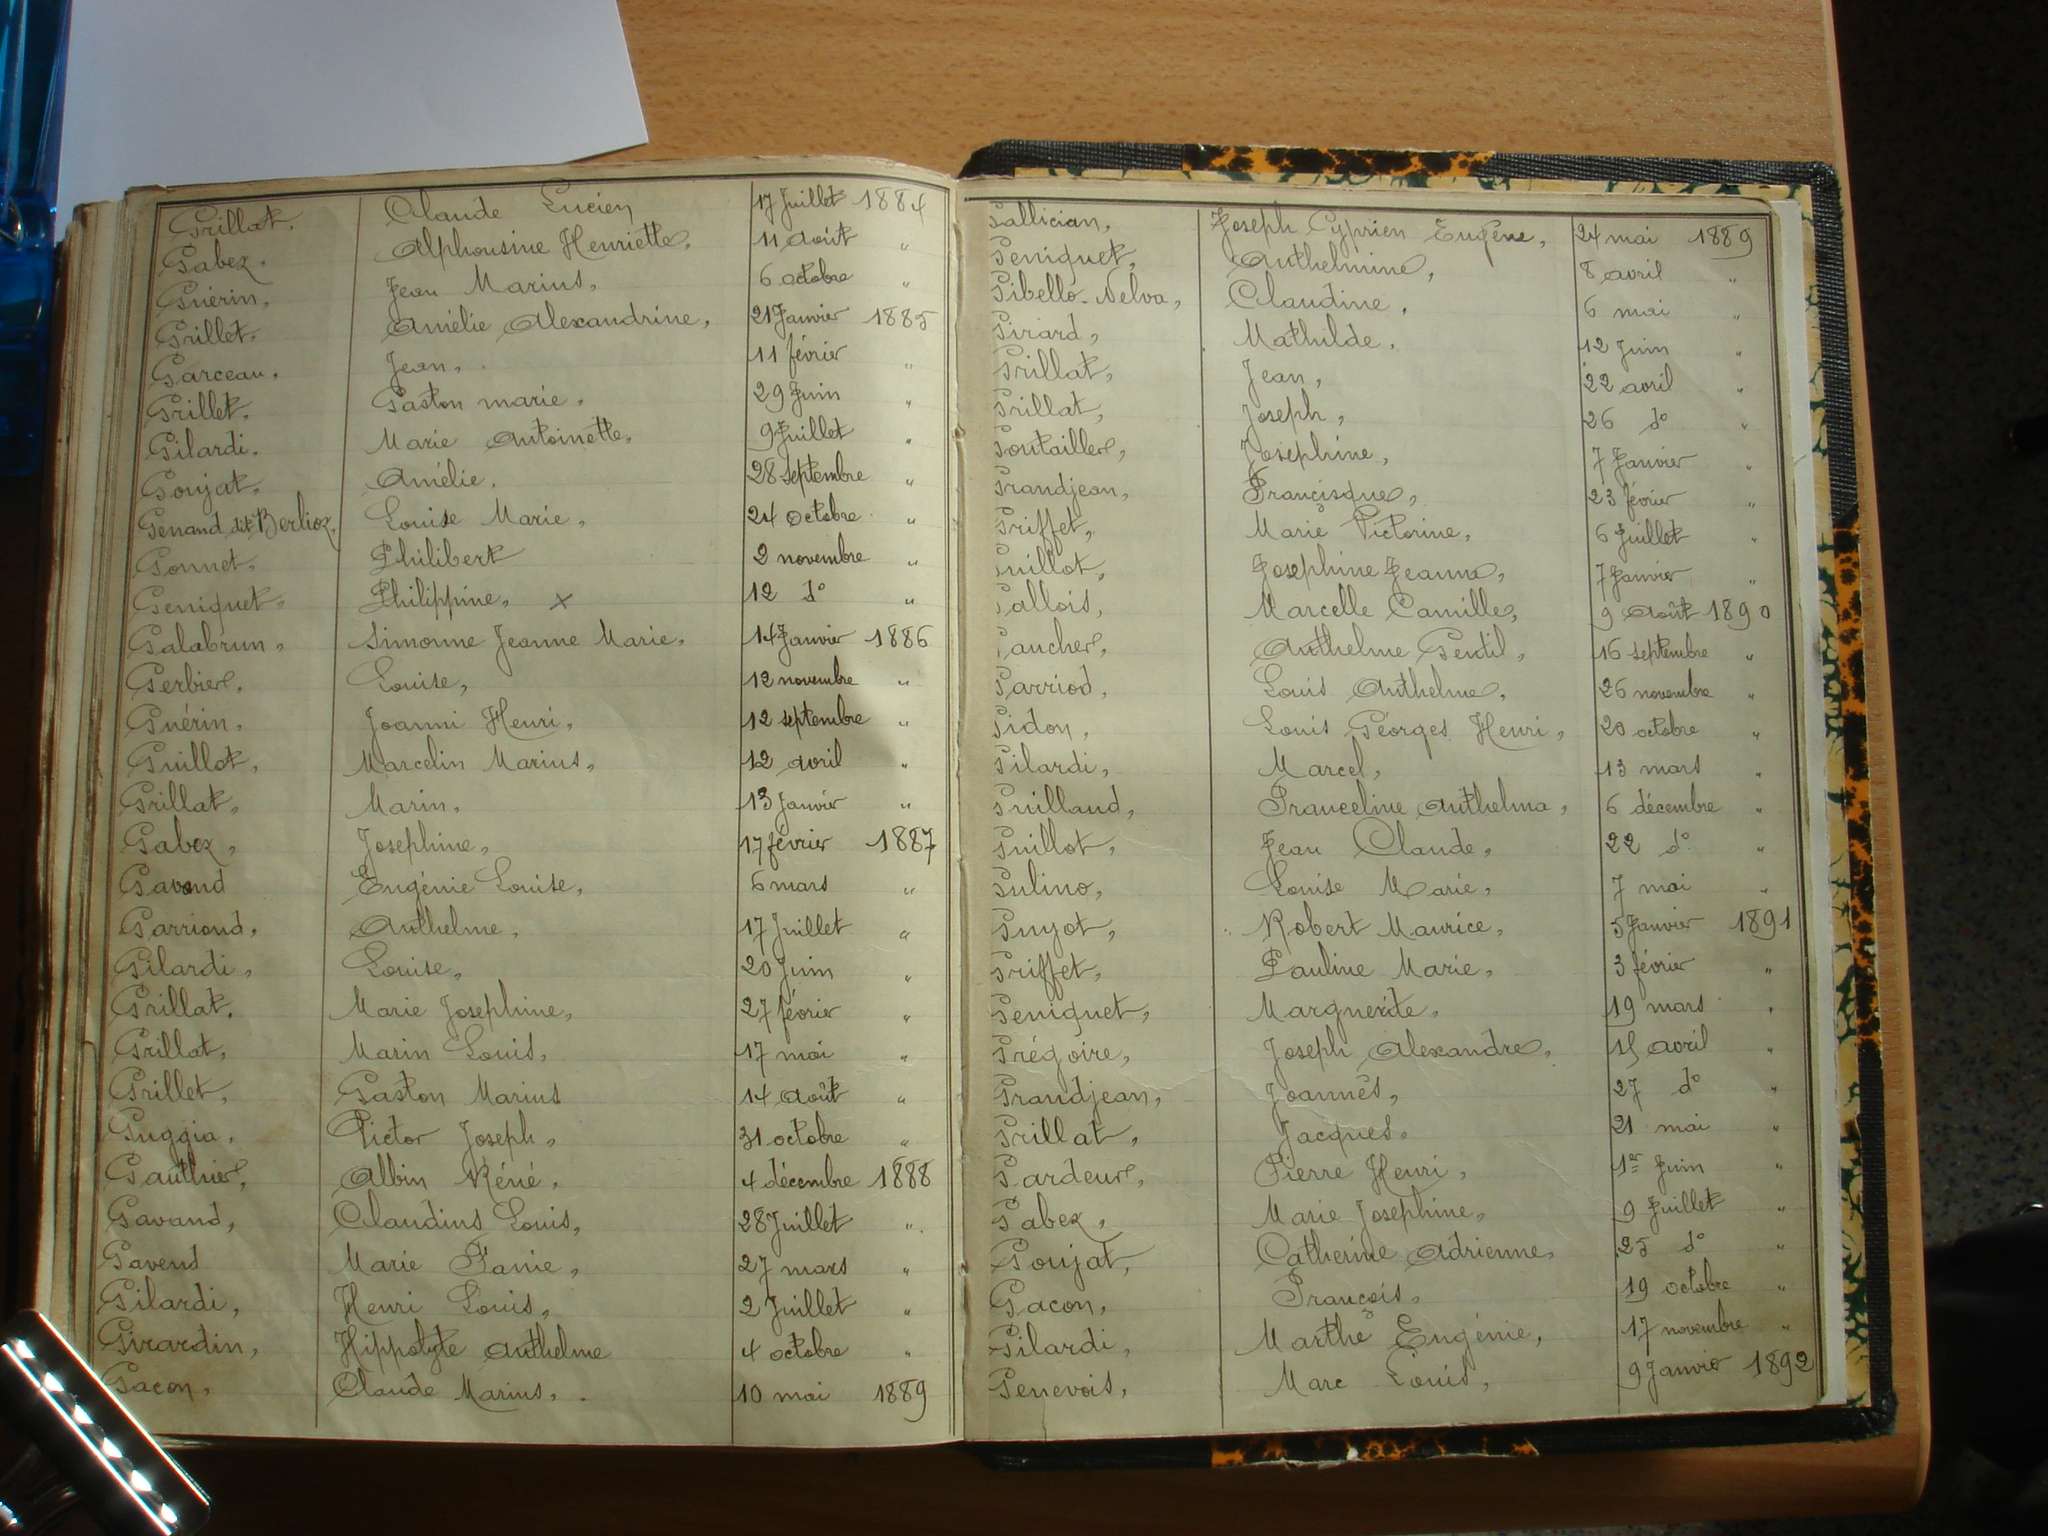 Grillat. Claude Lucien 17 Juillet 1884
Gabez. Alphonsine Henriette. 11 Août "
Guérin. Jean Marius. 6 octobre "
Grillet. Amélie Alexandrine. 21 Janvier 1885
Garceau. Jean. 11 février "
Grillet. Gaston marie. 29 Juin "
Gilardi. Marie Antoinette. 9 Juillet "
Goujat. Amélie. 28 septembre "
Genand dit Berlioz. Louise Marie. 24 octobre "
Gonnet. Philibert 2 novembre "
Geniquet. Philippine. x 12 d° "
Galabrun. Simonne Jeanne Marie. 14 Janvier 1886
Gerbier. Louise, 12 novembre "
Guérin. Joanni Henri, 12 septembre "
Guillot, Marcelin Marius, 12 avril "
Grillat, Marin, 13 Janvier "
Gabez, Josephine, 17 février 1887
Gavand Eugénie Louise, 6 mars "
Garriond, Anthelme, 17 Juillet "
Gilardi, Louise, 20 Juin "
Grillat, Marie Josephine, 27 février "
Grillat, Marin Louis, 17 mai "
Grillet, Gaston Marius 14 août "
Guggia, Victor Joseph, 31 octobre "
Gauthier, Albin Réné, 4 décembre 1888
Gavand, Claudius Louis, 28 Juillet "
Gavend Marie Fanie, 27 mars "
Gilardi, Henri Louis, 2 Juillet "
Girardin, Hippolyte Anthelme 4 octobre "
Gacon, Claude Marius, 10 mai 1889
Gallician, Joseph Cyprien Eugène, 24 mai 1889
Geniquet, Anthelmine, 8 avril "
Gibello-Nelva, Claudine, 6 mai "
Girard, Mathilde, 12 Juin "
Grillat, Jean, 22 avril "
Grillat, Joseph, 26 d° "
Gontailler, Josephine, 7 Janvier "
Grandjean, Francisque, 23 février "
Griffet, Marie Victorine, 6 Juillet "
Guillot, Josephine Jeanne, 7 Janvier "
Gallois, Marcelle Camille, 9 Août 1890
Gaucher, Anthelme Gentil, 16 septembre "
Garriod, Louis Anthelme, 26 novembre "
Gidon, Louis Géorges Henri, 20 octobre "
Gilardi, Marcel, 13 mars "
Guilland, Franceline Anthelma, 6 décembre "
Guillot, Jean Claude, 22 d° "
Gulino, Louise Marie, 7 mai "
Guyot, Robert Maurice, 5 Janvier 1891
Griffet, Pauline Marie, 3 février "
Geniquet, Marguerite, 19 mars "
Grégoire, Joseph Alexandre, 15 avril "
Grandjean, Joannès, 27 d° "
Grillat, Jacques, 21 mai "
Gardeur, Pierre Henri, 1er Juin "
Gabez, Marie Josephine, 9 Juillet "
Goujat, Catherine Adrienne, 25 d° "
Gacon, François, 19 octobre "
Gilardi, Marthe Eugénie, 17 novembre "
Genevois, Marc Louis, 9 Janvier 1892